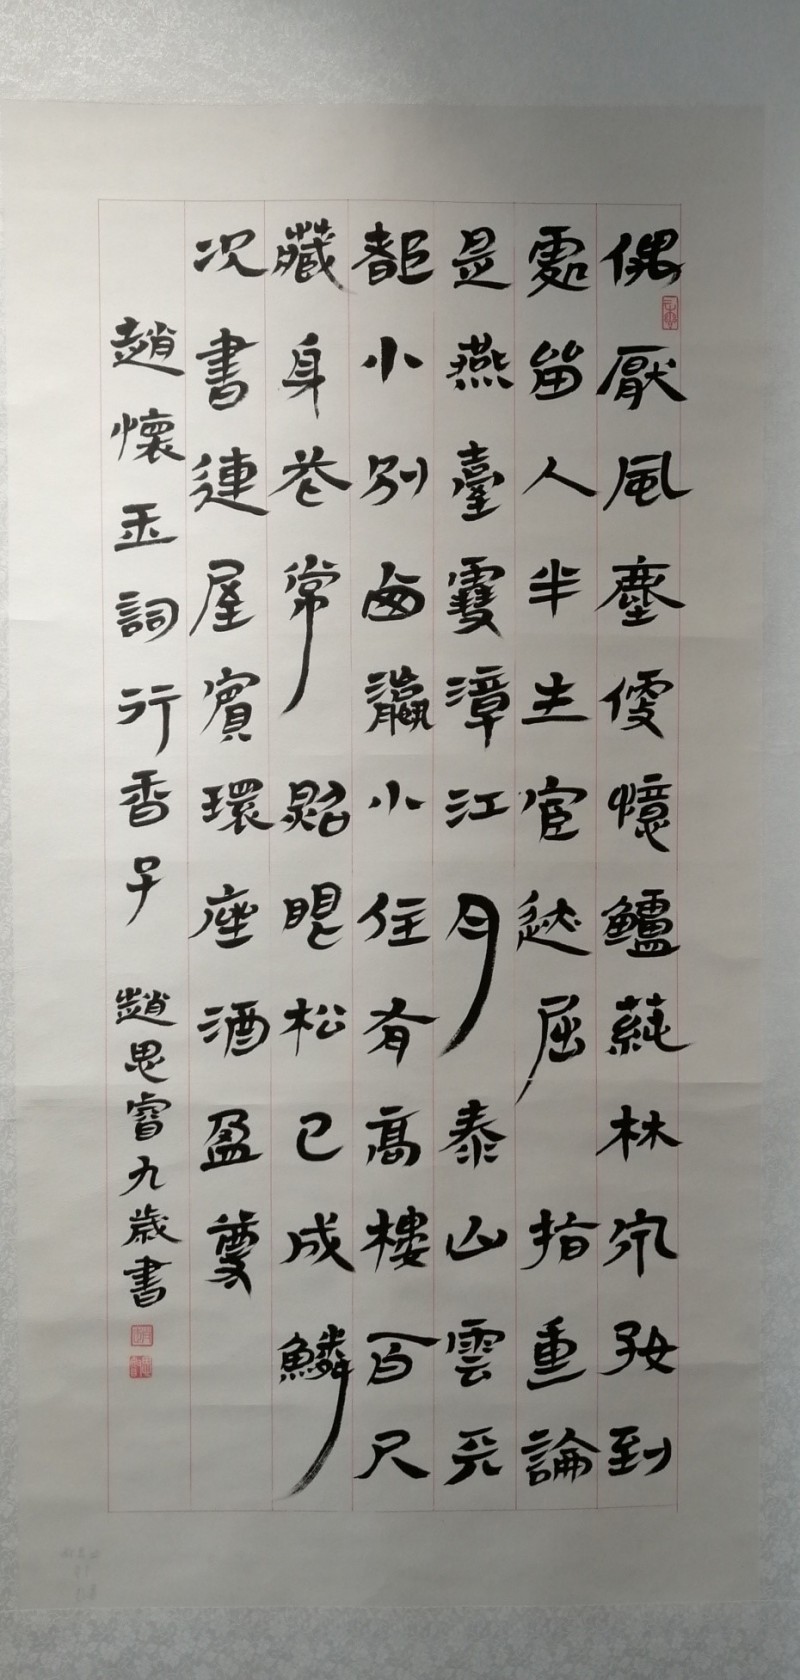 偶厭風塵便憶鱸蒓林泉好到
處留人半生宦迹屈指重論
是燕臺雪漳江月泰山雲
都小別西瀛小住有高樓百尺
藏身花常照眼松已成鱗
况書連屋賓環座酒盈尊
趙懷玉詞行香子 趙思睿九歲書